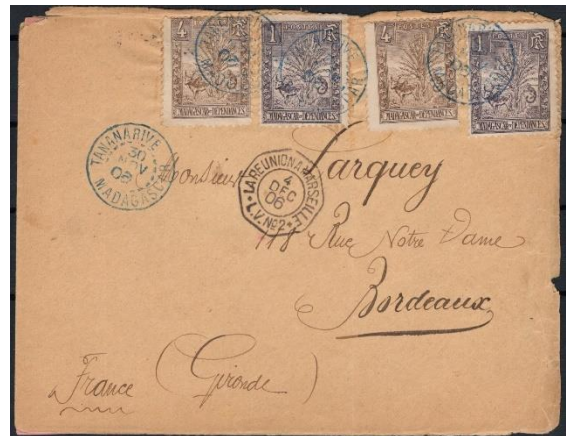 4 RF
1 RF
4 RF
1 RF
POSTES
MADAGASCAR-DÉPENDANCES
MADAGASCAR-DÉPENDANCES
MADAGASCAR-DÉPENDANCES
MADAGASCAR-DÉPENDANCES
TANANARIVE
30
NOV
06
MADAGASCAR
LA REUNION A MARSEILLE
4
DEC
06
L.V. Nº2
Monsieur Larquey
118 Rue Notre Dame
Bordeaux
France (Gironde)